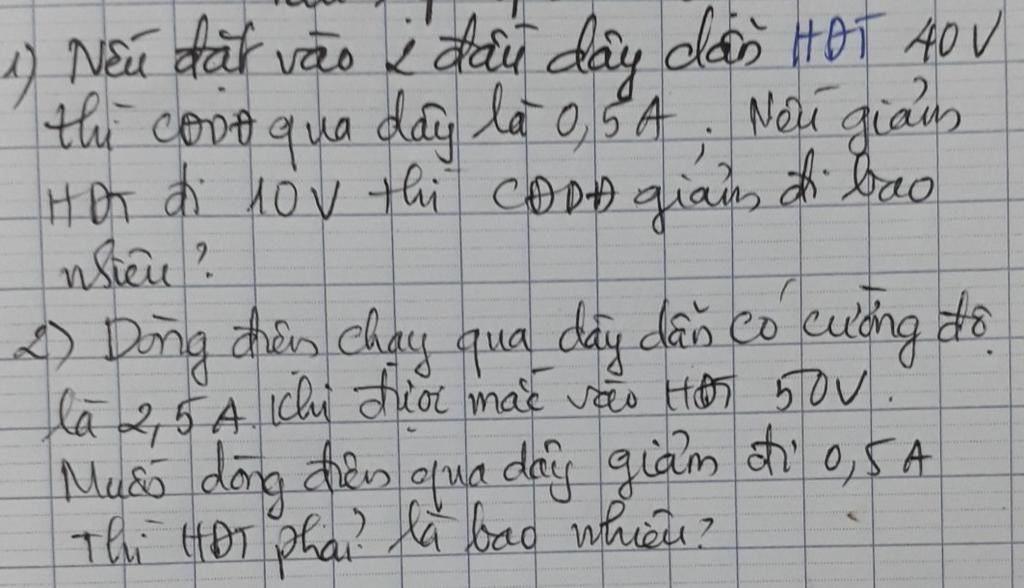 1) Nếu đặt vào 2 đầu dây dẫn HĐT 40V
thì CĐDĐ qua dây là 0,5A. Nếu giảm
HĐT đi 10V thì CĐDĐ giảm đi bao
nhiêu?
2) Dòng điện chạy qua dây dẫn có cường độ
là 2,5A khi được mắc vào HĐT 50V.
Muốn dòng điện qua dây giảm đi 0,5A
thì HĐT phải là bao nhiêu?